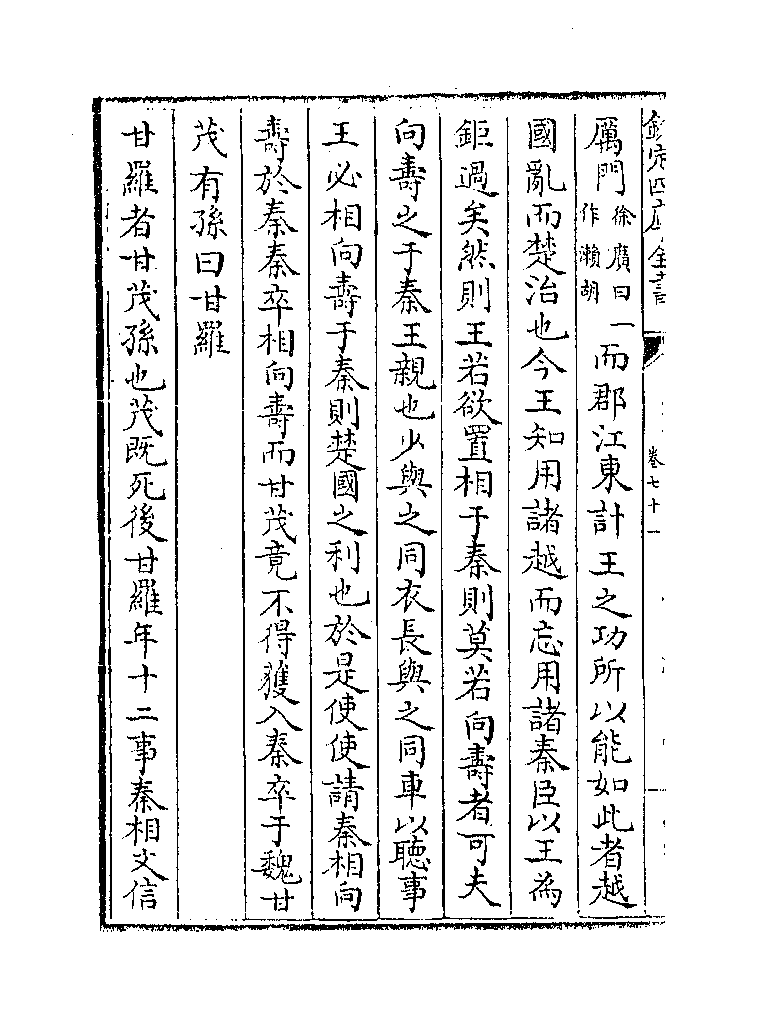 欽定四庫全書
卷七十一
厲門徐廣曰一作瀨胡而郡江東計王之功所以能如此者越
國亂而楚治也今王知用諸越而忘用諸秦臣以王為
鉅過矣然則王若欲置相于秦則莫若向壽者可夫
向壽之于秦王親也少與之同衣長與之同車以聽事
王必相向壽于秦則楚國之利也於是使使請秦相向
壽於秦秦卒相向壽而甘茂竟不得獲入秦卒于魏甘
茂有孫曰甘羅
甘羅者甘茂孫也茂既死後甘羅年十二事秦相文信